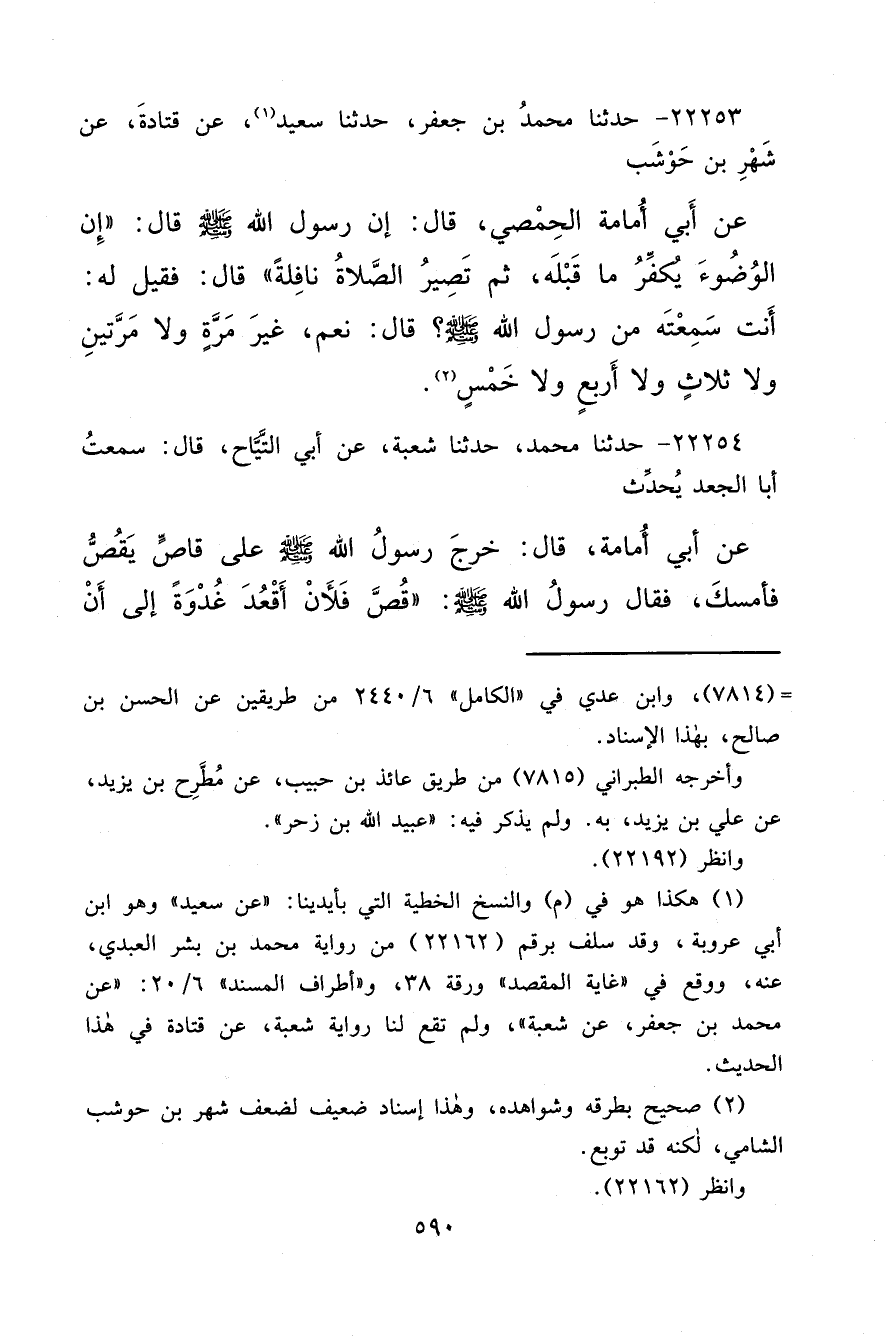 ٢٢٢٥٣- حدثنا محمدُ بن جعفر، حدثنا سعيد(١)، عن قتادةَ، عن
شَهْرِ بن حَوْشَب
عن أَبي أُمامة الحِمْصي، قال: إن رسول الله ﷺ قال: «إِن
الوُضُوءَ يُكفِّرُ ما قَبْلَه، ثم تَصِيرُ الصَّلاةُ نافِلةً» قال: فقيل له:
أَنت سَمِعْتَه من رسول الله ﷺ؟ قال: نعم، غيرَ مَرَّةٍ ولا مَرَّتينِ
ولا ثلاثٍ ولا أَربعٍ ولا خَمْسٍ(٢).
٢٢٢٥٤- حدثنا محمد، حدثنا شعبة، عن أبي التَّيَّاح، قال: سمعتُ
أبا الجعد يُحدِّث
عن أبي أُمامة، قال: خرجَ رسولُ الله ﷺ على قاصٍّ يَقُصُّ
فأمسكَ، فقال رسولُ الله ﷺ: «قُصَّ فَلَأَنْ أَقْعُدَ غُدْوَةً إلى أَنْ
= (٧٨١٤)، وابن عدي في «الكامل» ٢٤٤٠/٦ من طريقين عن الحسن بن
صالح، بهٰذا الإسناد.
وأخرجه الطبراني (٧٨١٥) من طريق عائذ بن حبيب، عن مُطَّرِح بن يزيد،
عن علي بن يزيد، به. ولم يذكر فيه: «عبيد الله بن زحر».
وانظر (٢٢١٩٢).
(١) هكذا هو في (م) والنسخ الخطية التي بأيدينا: «عن سعيد» وهو ابن
أبي عروبة، وقد سلف برقم (٢٢١٦٢) من رواية محمد بن بشر العبدي،
عنه، ووقع في «غاية المقصد» ورقة ٣٨، و«أطراف المسند» ٢٠/٦: «عن
محمد بن جعفر، عن شعبة»، ولم تقع لنا رواية شعبة، عن قتادة في هٰذا
الحديث.
(٢) صحيح بطرقه وشواهده، وهٰذا إسناد ضعيف لضعف شهر بن حوشب
الشامي، لٰكنه قد توبع.
وانظر (٢٢١٦٢).
٥٩٠